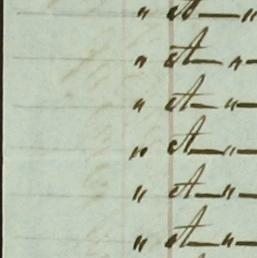 " A — "
" A — "
" A — "
" A — "
" A — "
" A — "